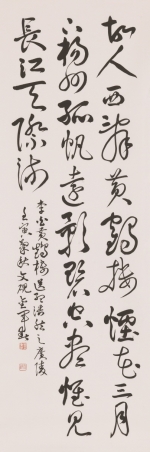 故人西辭黃鶴樓煙花三月
下揚州孤帆遠影碧空盡惟見
長江天際流
李白黃鶴樓送孟浩然之廣陵
壬寅 秋